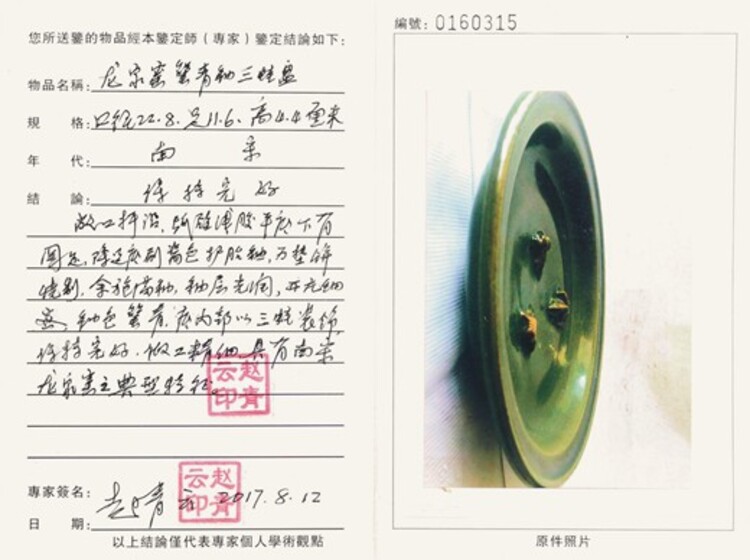 您所送鑒的物品經本鑒定師（專家）鑒定結論如下：
物品名稱：龙泉窑蟹青釉三蛙盘
規 格：口径22.8.足11.6.高4.4厘米
年 代：南 宋
結 論：保持完好
敞口折沿，弧腹 平底下有
圈足，隆足底刷酱色护胎釉，为垫饼
烧制，余施满釉，釉层光润，开元细
釉色蟹青，底内部以三蛙装饰，
保持完好，做工精细具有南宋
龙泉窑之典型特征。
赵青云印
專家簽名：赵青云
赵青云印
日 期：2017.8.12
以上結論僅代表專家個人學術觀點
編號：0160315
原件照片